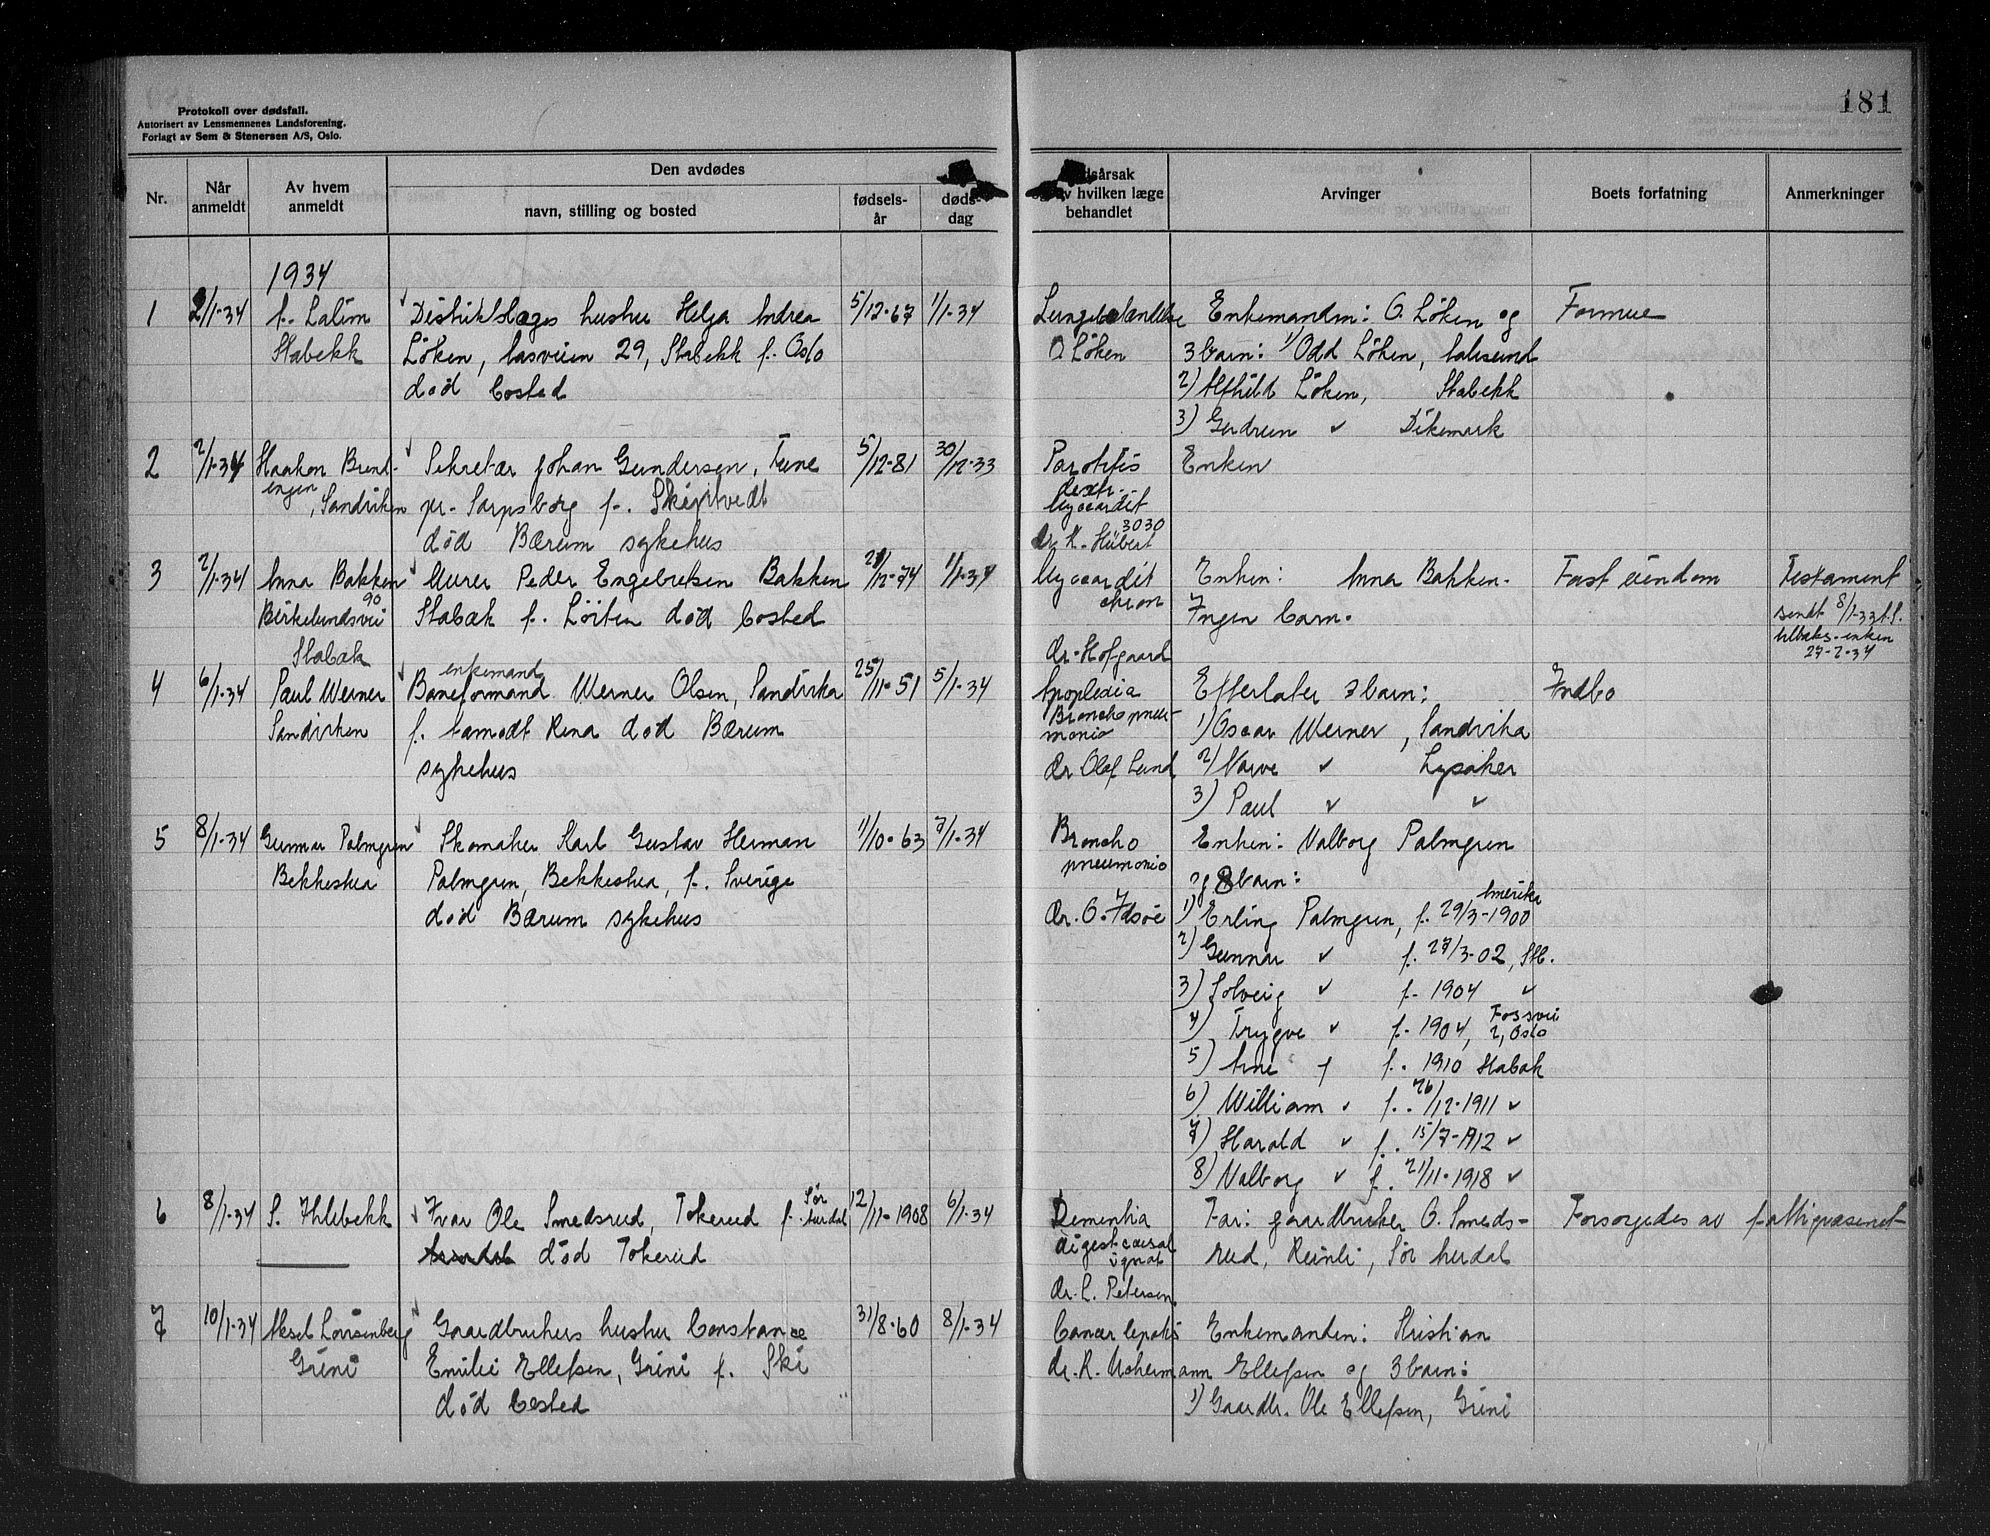 Protokoll over dødsfall.
Autorisert av Lensmennenes Landsforening.
Forlagt av Sem & Stenersen A/S, Oslo.
181
Nr.
Når anmeldt
Av hvem anmeldt
Den avdødes
navn, stilling og bosted
fødselsår
døds-
dag
hvilken læge
behandlet
Arvinger
Boets forfatning
Anmerkninger
1934
1 2/1-34 Stabekk
Distriktslæges hustru Helga Andrea
Löken, 29, Stabekk f. Oslo
död bosted
5/12-67 1/1-34
O Löken
Enkemannen: O. Löken og
3 barn: 1) Odd Löken,
2) Alfhild Löken, Stabekk
3) Gudrun " Dikemark
Formue
2 2/1-34 Haakon Brend-
engen, Sandviken
Sekretær Johan Gundersen, Tune
pr. Sarpsborg f. Skiptvedt
död Bærum sykehus
5/12-81 30/12-33
Parotitis
dextr.
Myocardit
3030
dr. K. Hübert
Enken
3 2/1-34 Anna Bakken
Birkelundsvei 90
Stabæk
Murer Peder Engebretsen Bakken
Stabæk f. Löiten död bosted
21/12-74 1/1-34
Myocardit
chron
dr. Hofgaard
Enken: Anna Bakken.
Ingen barn.
Fast eiendom
Testament
sendt 8/1-33
tilbake enken
27-2-34
4 6/1-34 Paul Werner
Sandviken
enkemand
Baneformand Werner Olsen, Sandvika
f. Aamodt Rena död Bærum
sykehus
25/11-51 5/1-34
Apoplexia
Broncho pneu-
monia
dr. Olaf Lund
Efterlater 3 barn:
1) Oscar Werner, Sandvika
2) " Lysaker
3) Paul " "
Indbo
5 8/1-34 Gunnar Palmgren
Bekkeshea
Skomaker Karl Gustav Herman
Palmgren, Bekkestua, f. Sverige
död Bærum sykehus
1/10-63 7/1-34
Broncho
pneumonia
dr. O. Idsøe
Enken: Valborg Palmgren
og 8 barn:
1) Erling Palmgren, f. 29/3-1900 Amerika
2) Gunnar " f. 27/3-02, Stb.
3) Solveig " f. 1904 "
4) Trygve " f. 1904, Fossvei 2, Oslo
5) Arne " f. 1910 Stabæk
6) William " f. 26/12-1911 "
7) Harald " f. 15/7-1912 "
8) Valborg " f. 21/11-1918 "
6 8/1-34 S. Ihlebekk
Ivar Ole Smedsrud, Tokerud f. Sör Aurdal
död Tokerud
12/11-1908 6/1-34
Dementia
dr. L. Petersen.
Far: gaardbruker O. Smeds-
rud, Reinli, Sör Aurdal
Forsørgedes av fattigvæsenet
7 10/1-34 Aksel Lorisenberg
Grini
Gaardbrukers hustru Constance
Emilie Ellefsen, Grini f. Ski
död bosted
31/8-60 8/1-34
Cancer hepatis
dr. R. Uchermann
Enkemanden: Kristian
Ellefsen og 3 barn:
1) Gaardbr. Ole Ellefsen, Grini